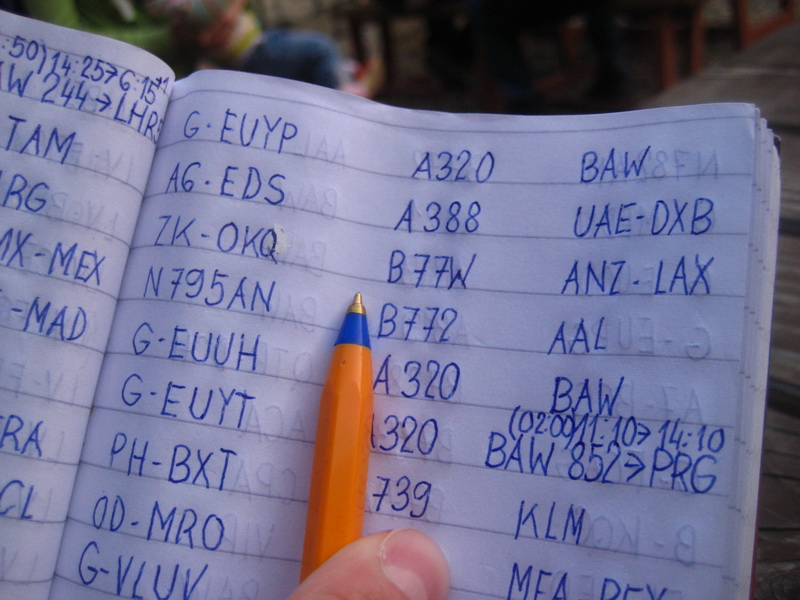 :50) 14:25→6:15+1
AW 244→LHR
TAM
RG
MX-MEX
-MAD
RA
CL
G-EUYP A320 BAW
A6-EDS A388 UAE-DXB
ZK-OKQ B77W ANZ-LAX
N795AN B772 AAL
G-EUUH A320 BAW
(02:00) 11:10→14:10
G-EUYT A320 BAW 852→PRG
PH-BXT 739 KLM
OD-MRO MEA-BEY
G-VLUV